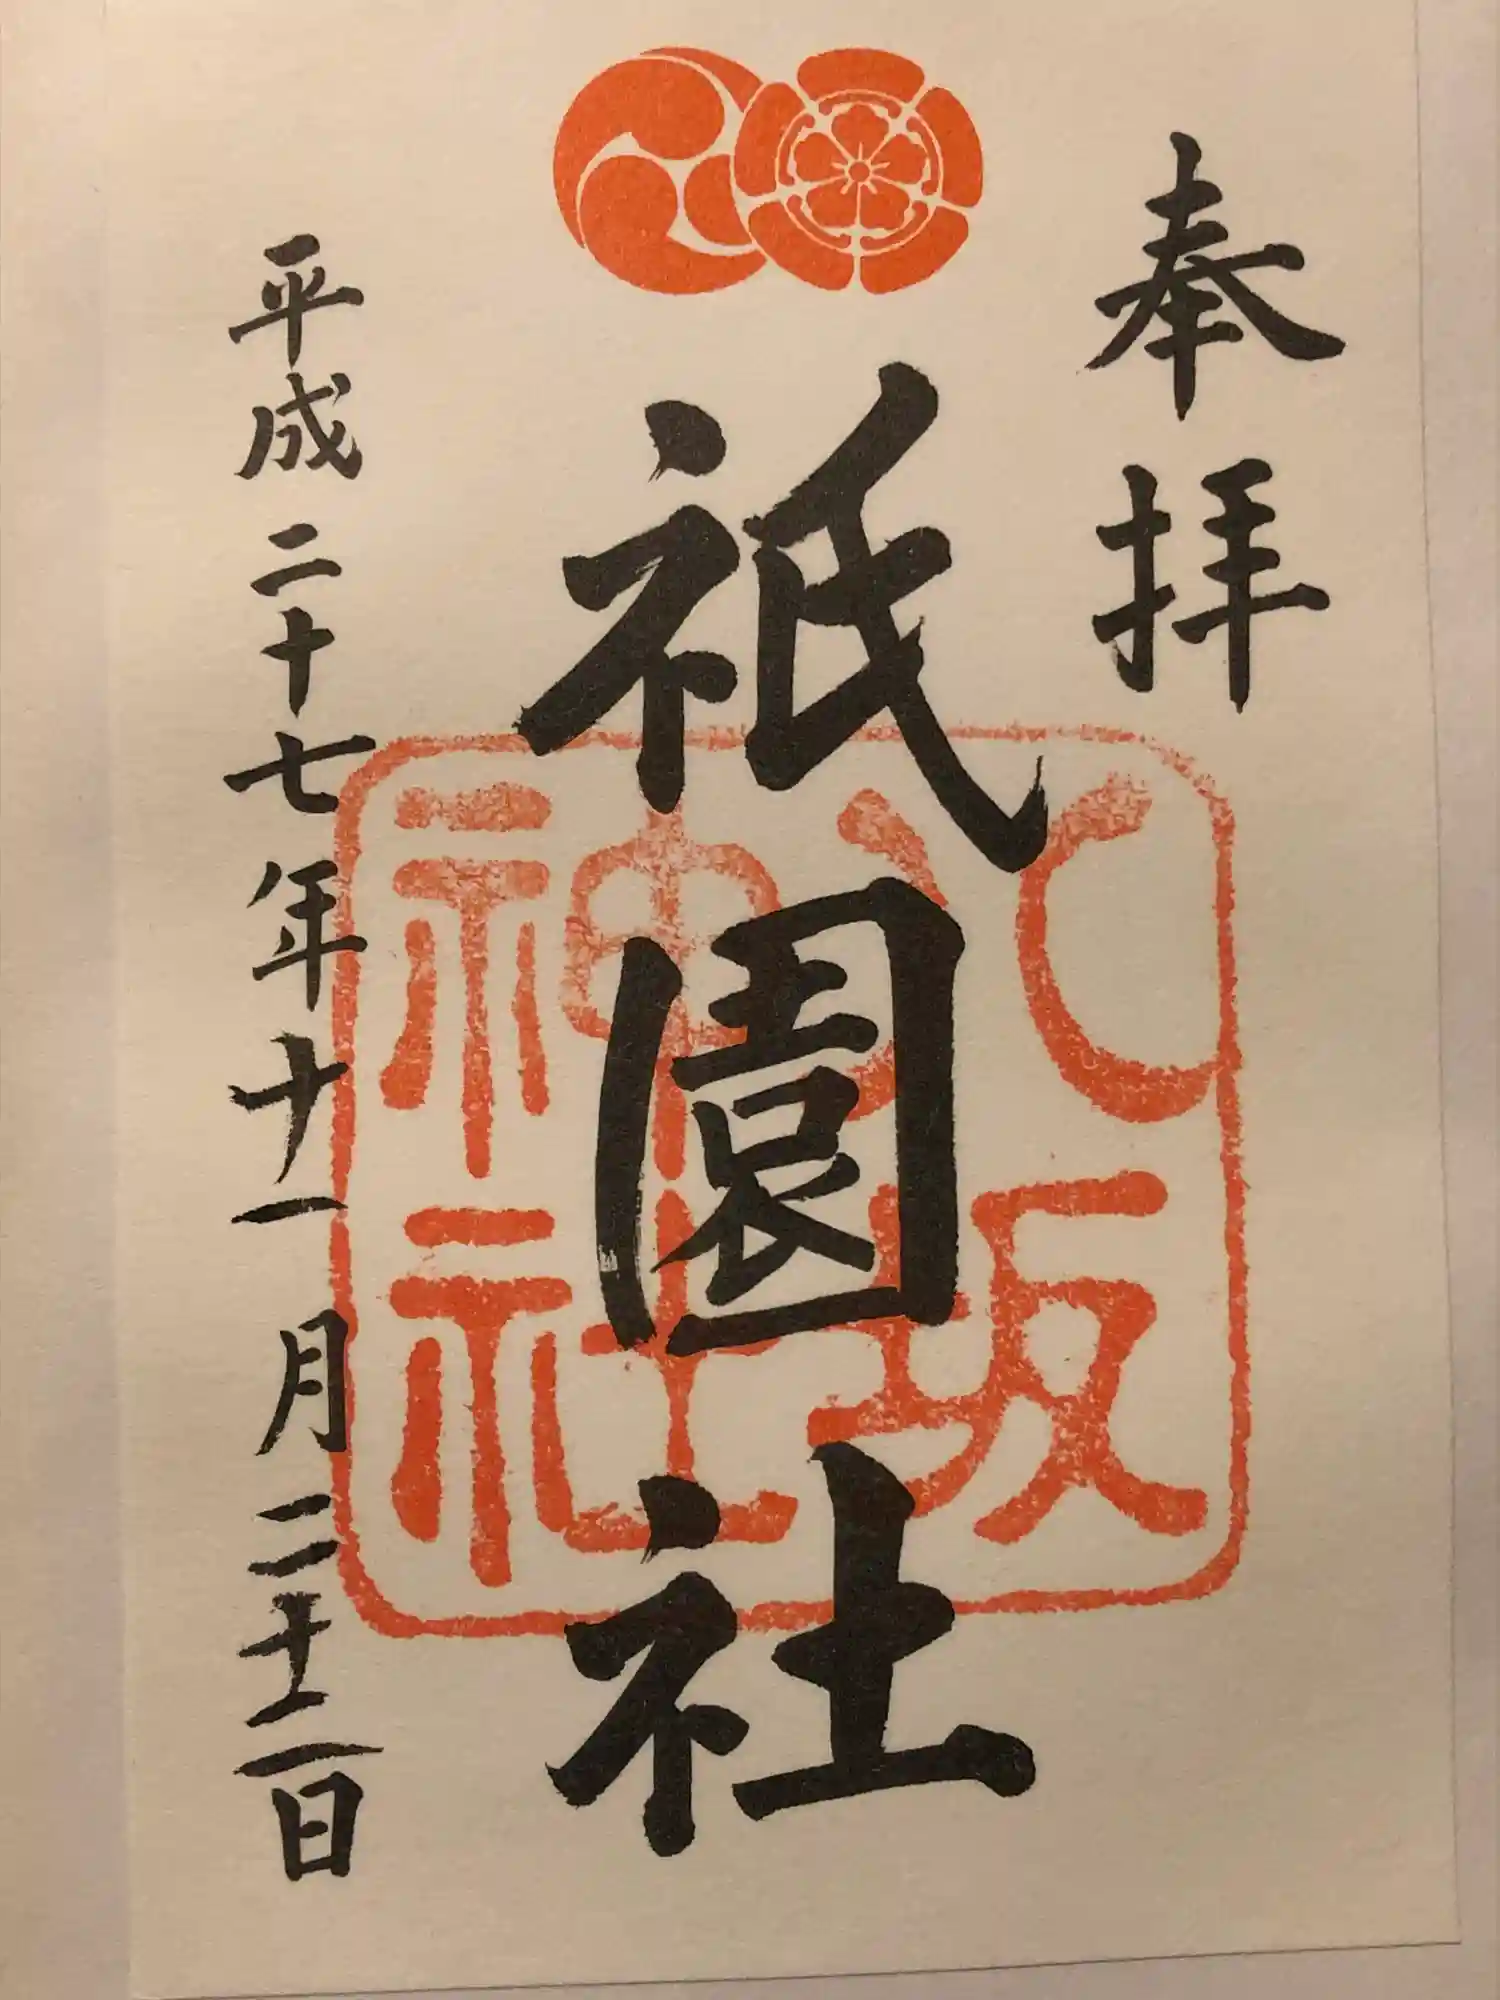 奉拝
祇園社
八坂
神社
平成二十七年十一月二十三日